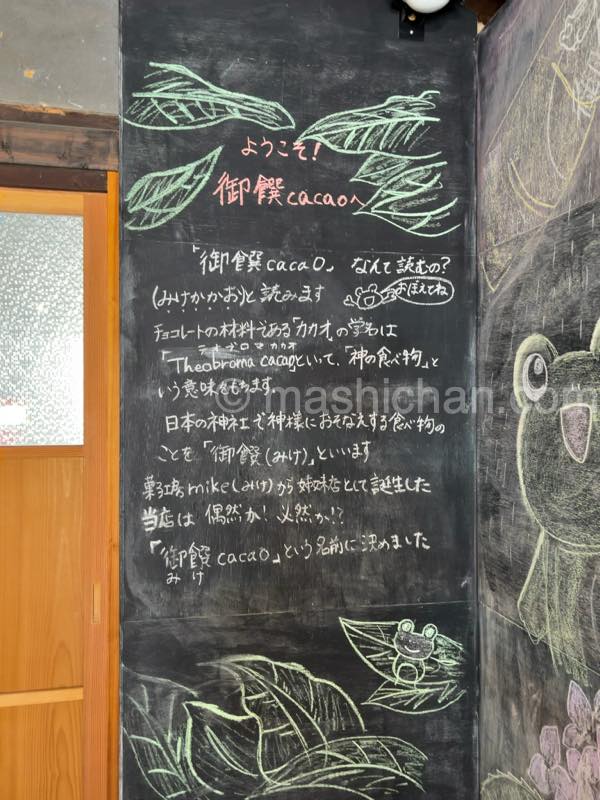 ようこそ!
御饌cacaoへ
「御饌cacao」 なんて読むの?
(みけかかお)と読みます
おぼえてね
チョコレートの材料である「カカオ」の学名は
テオブロマ カカオ
「Theobroma cacao」といって、「神の食べ物」と
いう意味をもちます
日本の神社で神様におそなえする食べ物の
ことを「御饌(みけ)」といいます
菓子工房mike(みけ)から姉妹店として誕生した
当店は 偶然か! 必然か!?
「御饌cacao」という名前に決めました
みけ
© mashichan.com